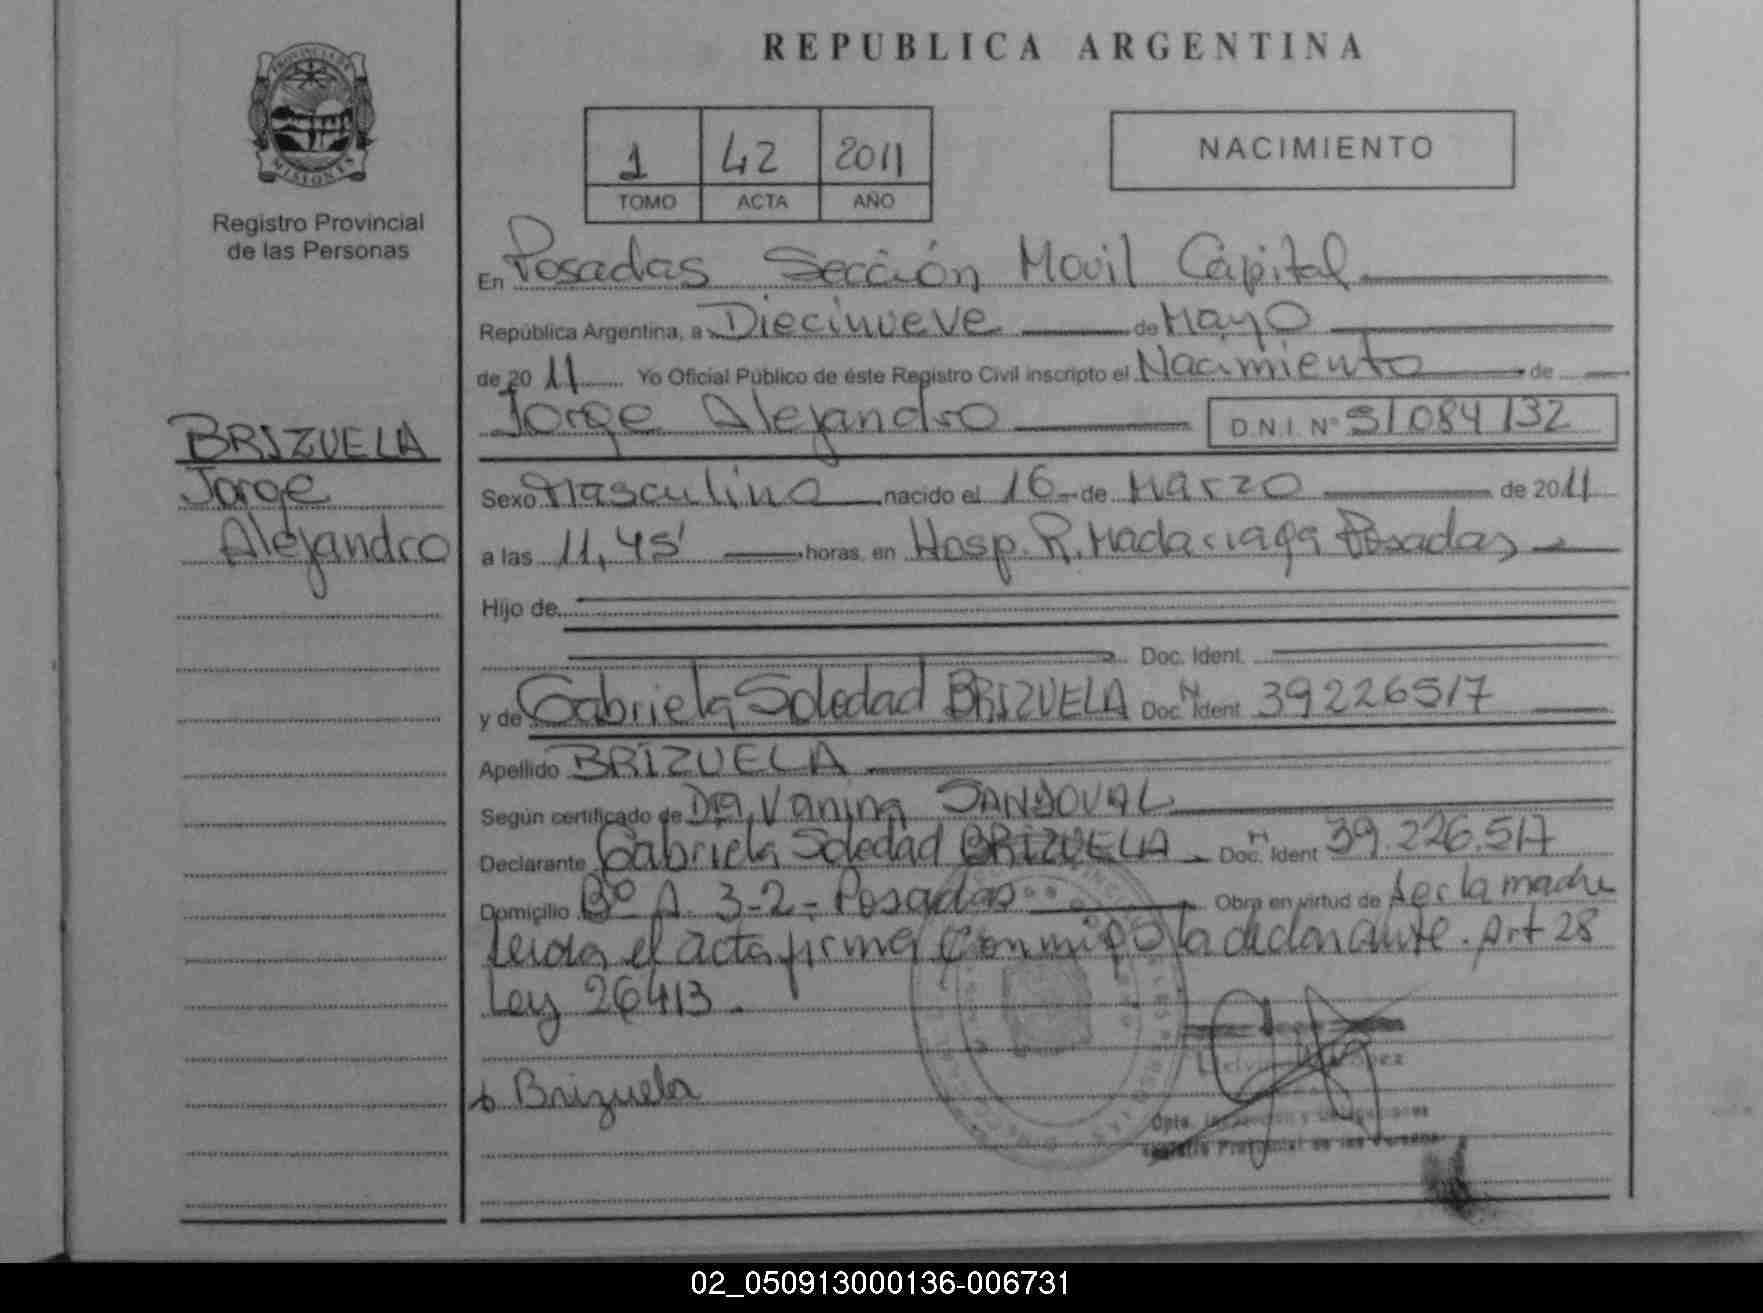 PROVINCIA DE
MISIONES
Registro Provincial
de las Personas
BRIZUELA
Jorge
Alejandro
REPUBLICA ARGENTINA
1 42 2011
TOMO ACTA AÑO
NACIMIENTO
En Posadas Sección Movil Capital
República Argentina, a Diecinueve de Mayo
de 2011 Yo Oficial Público de éste Registro Civil inscripto el Nacimiento de
Jorge Alejandro D.N.I. Nº 51084132
Sexo Masculino nacido el 16 de Marzo de 2011
a las 11,45' horas, en Hosp. R. Madariaga Posadas
Hijo de
Doc. Ident.
y de Gabriela Soledad BRIZUELA Doc. Ident. 39226517
Apellido BRIZUELA
Según certificado de Dra. Vanina SANDOVAL
Declarante Gabriela Soledad BRIZUELA Doc. Ident 39.226.517
Domicilio Bº A. 3-2- Posadas Obra en virtud de ser la madre
Leida el acta firma conmigo la declarante. Art 28
Ley 26413.
Brizuela
Dpto.
Registro Provincial de las Personas
02_050913000136-006731